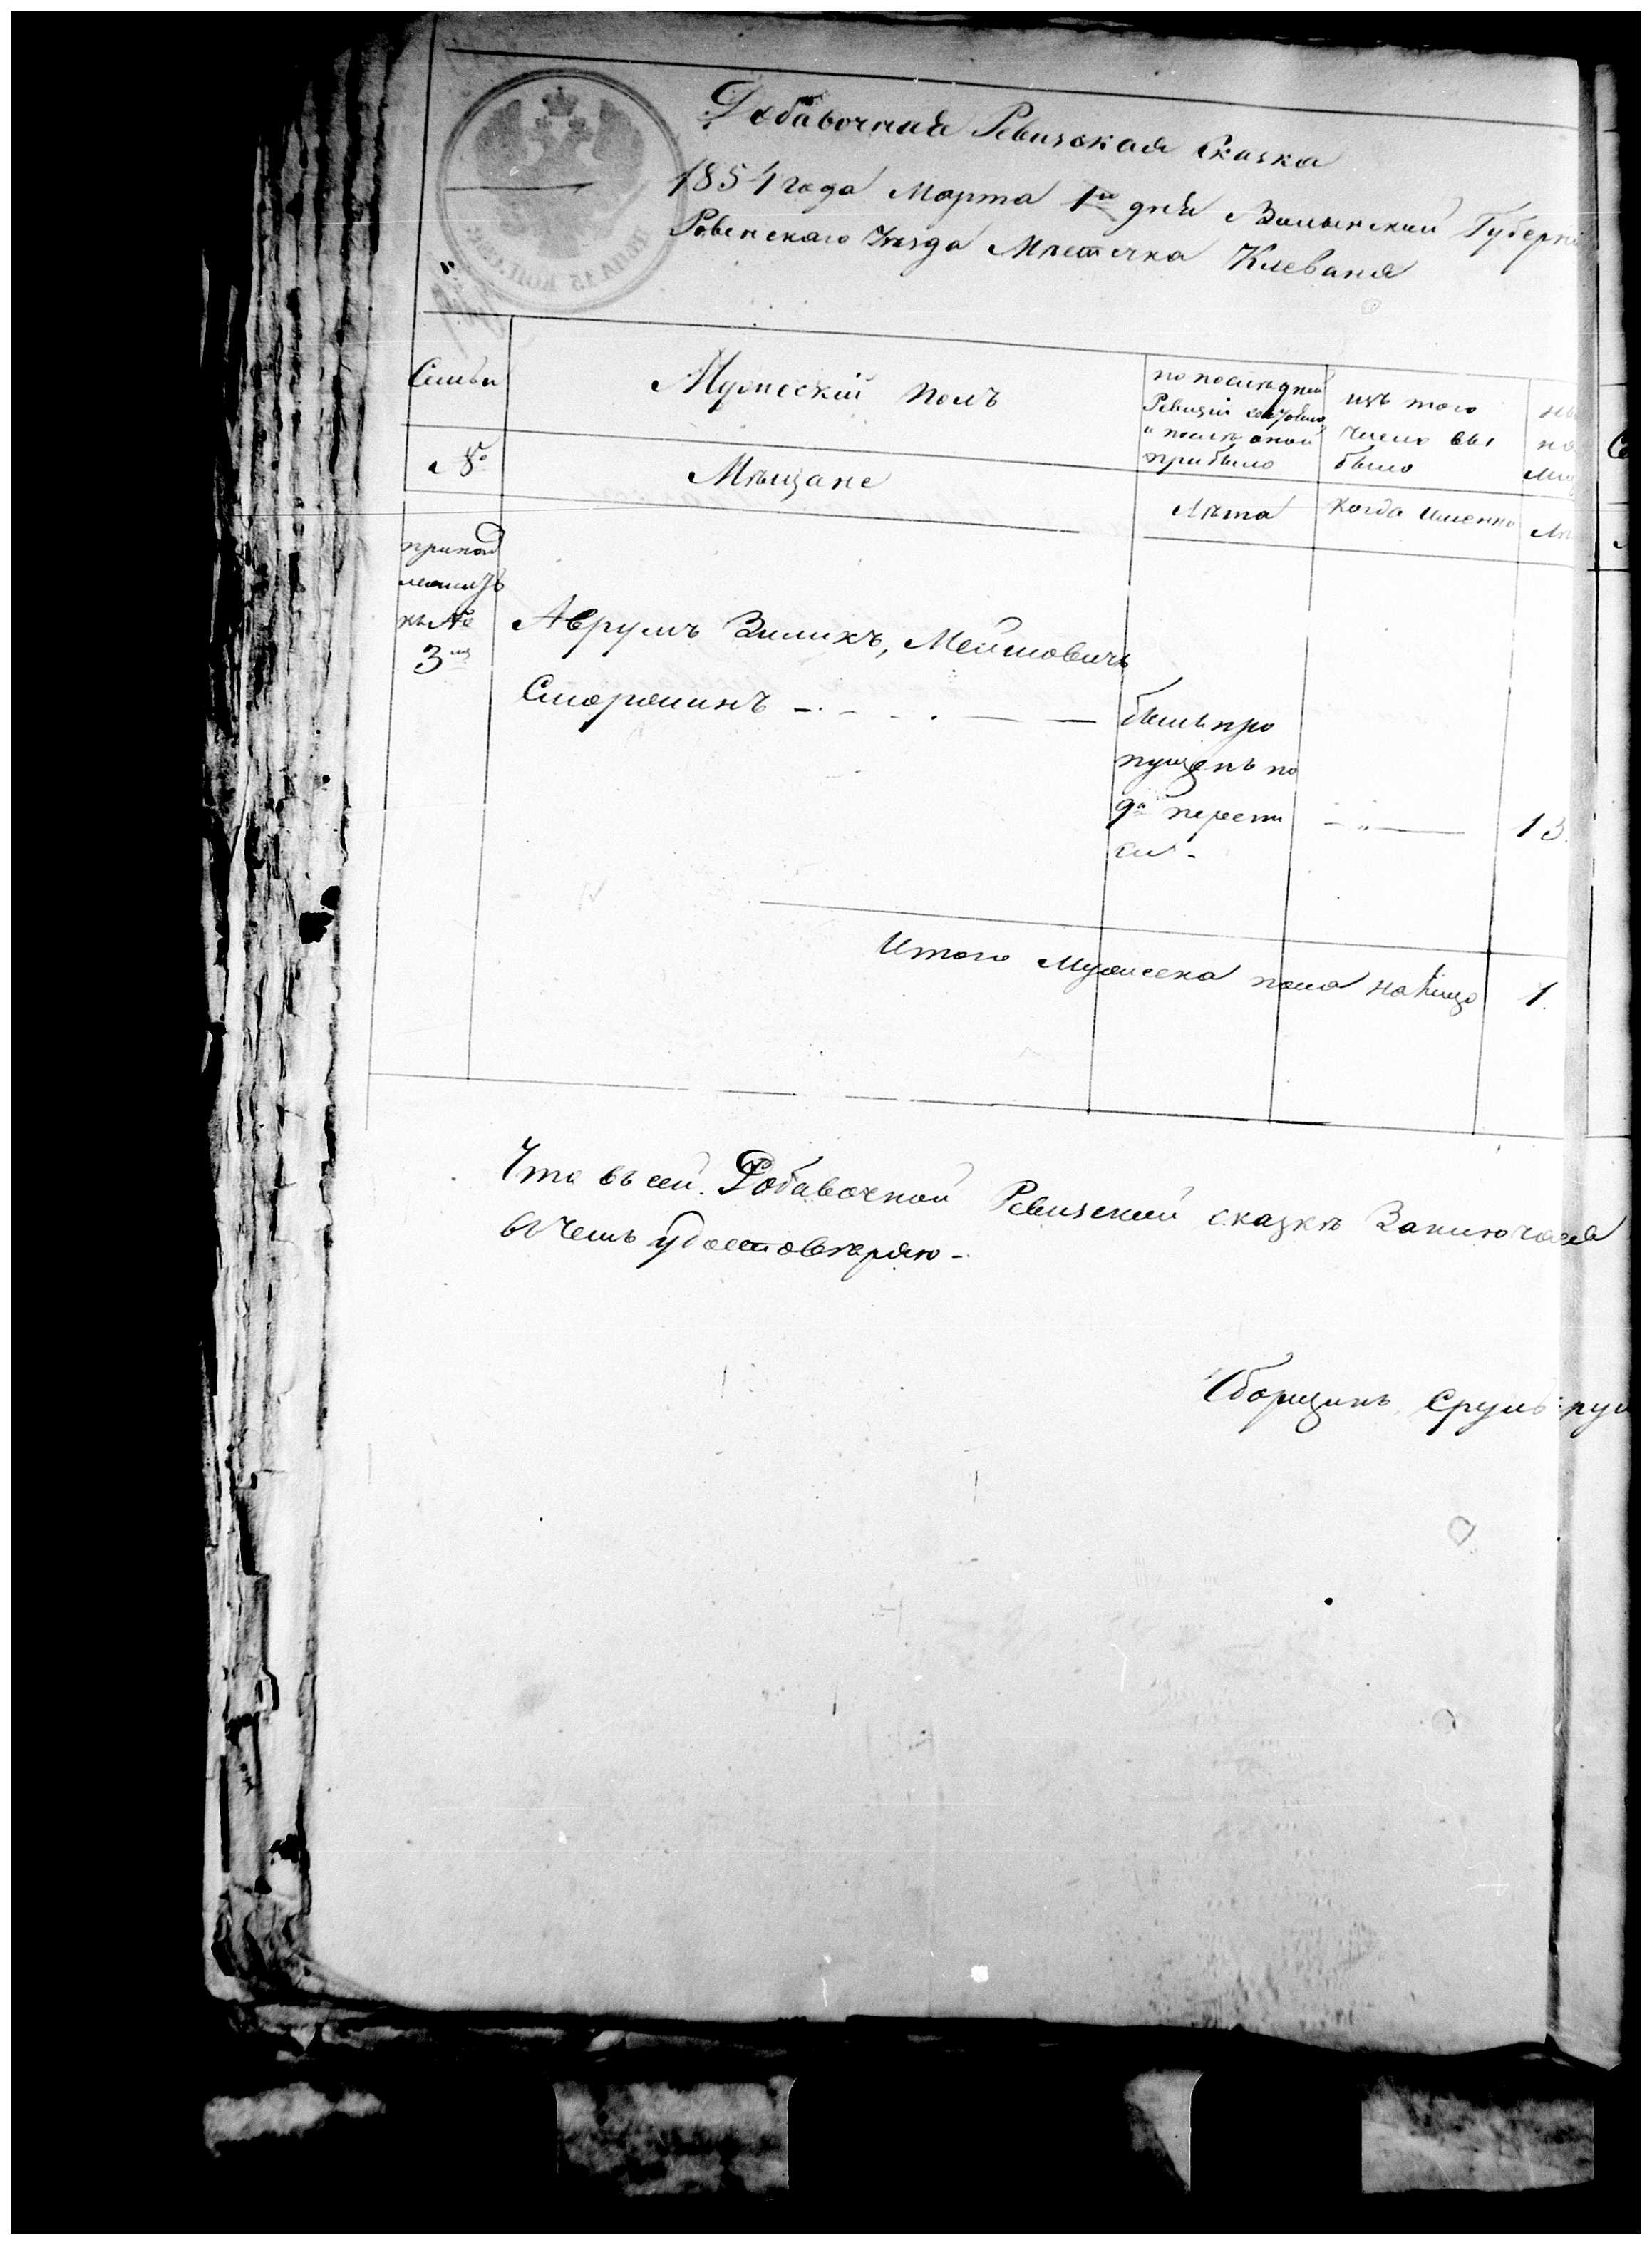 Добавочная Ревизская Сказка
1854 года Марта 1го дня Волынский Губерни
Ровенскаго Уезда Местечка Клеваня
Семьи
Мужеский полъ
по последней
Ревизии состояло
и после оной
прибыло
изъ того
числа вы
было
№
Мѣщане
Лѣта
Когда именно
принад
лежитъ
къ №
3му
Аврумъ Зиликъ, Мейшовичъ
Сморошинъ
былъ про
пущенъ по
9й перепи
си
13.
Итого мужеска пола налицо
1.
Что въ сей Добавочной Ревизской сказкѣ Заключался
въ чемъ удостовѣряю
Сборщикъ Сруль